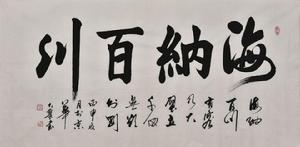 海納百川
海纳
百川
有容
乃大
壁立
千仞
無欲
則剛
丙申夏
月於京
華